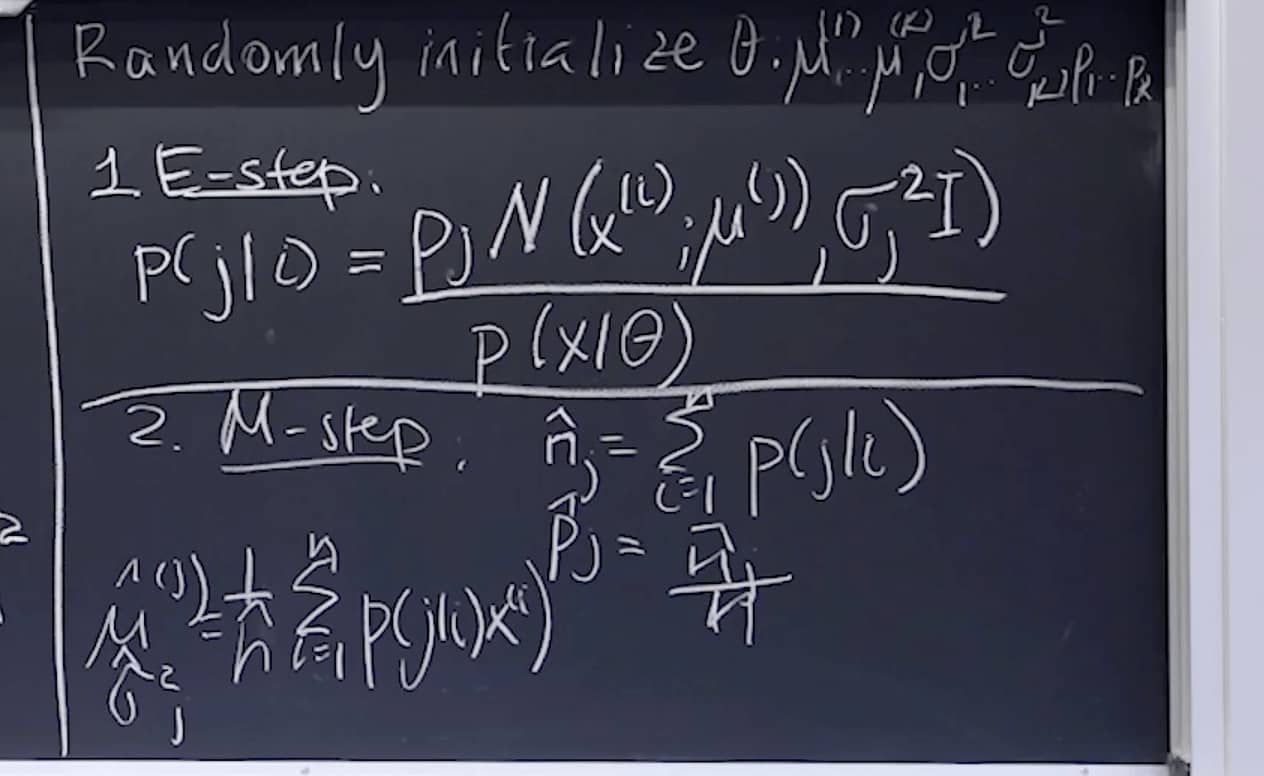 Randomly initialize θ: μ⁽¹⁾...μ⁽ᴷ⁾, σ₁²...σ_K², p₁...p_k
1. E-step:
p(j|i) = p_j N(x⁽ⁱ⁾; μ⁽ʲ⁾, σ_j² I)
p(x|θ)
2. M-step: n̂_j = Σ_{i=1}^n p(j|i)
p̂_j = n̂_j / n
μ̂⁽ʲ⁾ = 1/n Σ_{i=1}^n p(j|i) x⁽ⁱ⁾
σ̂_j²
2